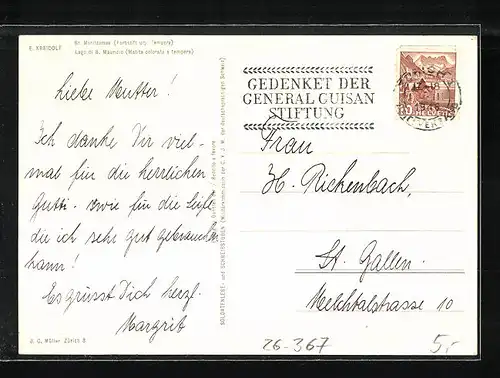 E. KREIDOLF
St. Moritzersee (Farbstift u. Tempera)
Lago di S. Maurizio (Matita colorata e tempera)
Liebe Mutter!
Ich danke Dir viel-
mal für die herrlichen
Gutti. sowie für die Seife
die ich sehr gut gebrauchen
kann!
Es grüsst Dich herzl.
Margrit
J. C. Müller Zürich 8
SOLDATENLESE- und SCHREIBSTUBEN (Militärkommission der C. V. J. M. der deutschsprachigen Schweiz)
GEDENKET DER
GENERAL GUISAN
STIFTUNG
HELVETIA
Frau
H. Rickenbach,
St. Gallen.
Melchtalstrasse 10
26-367
5,-